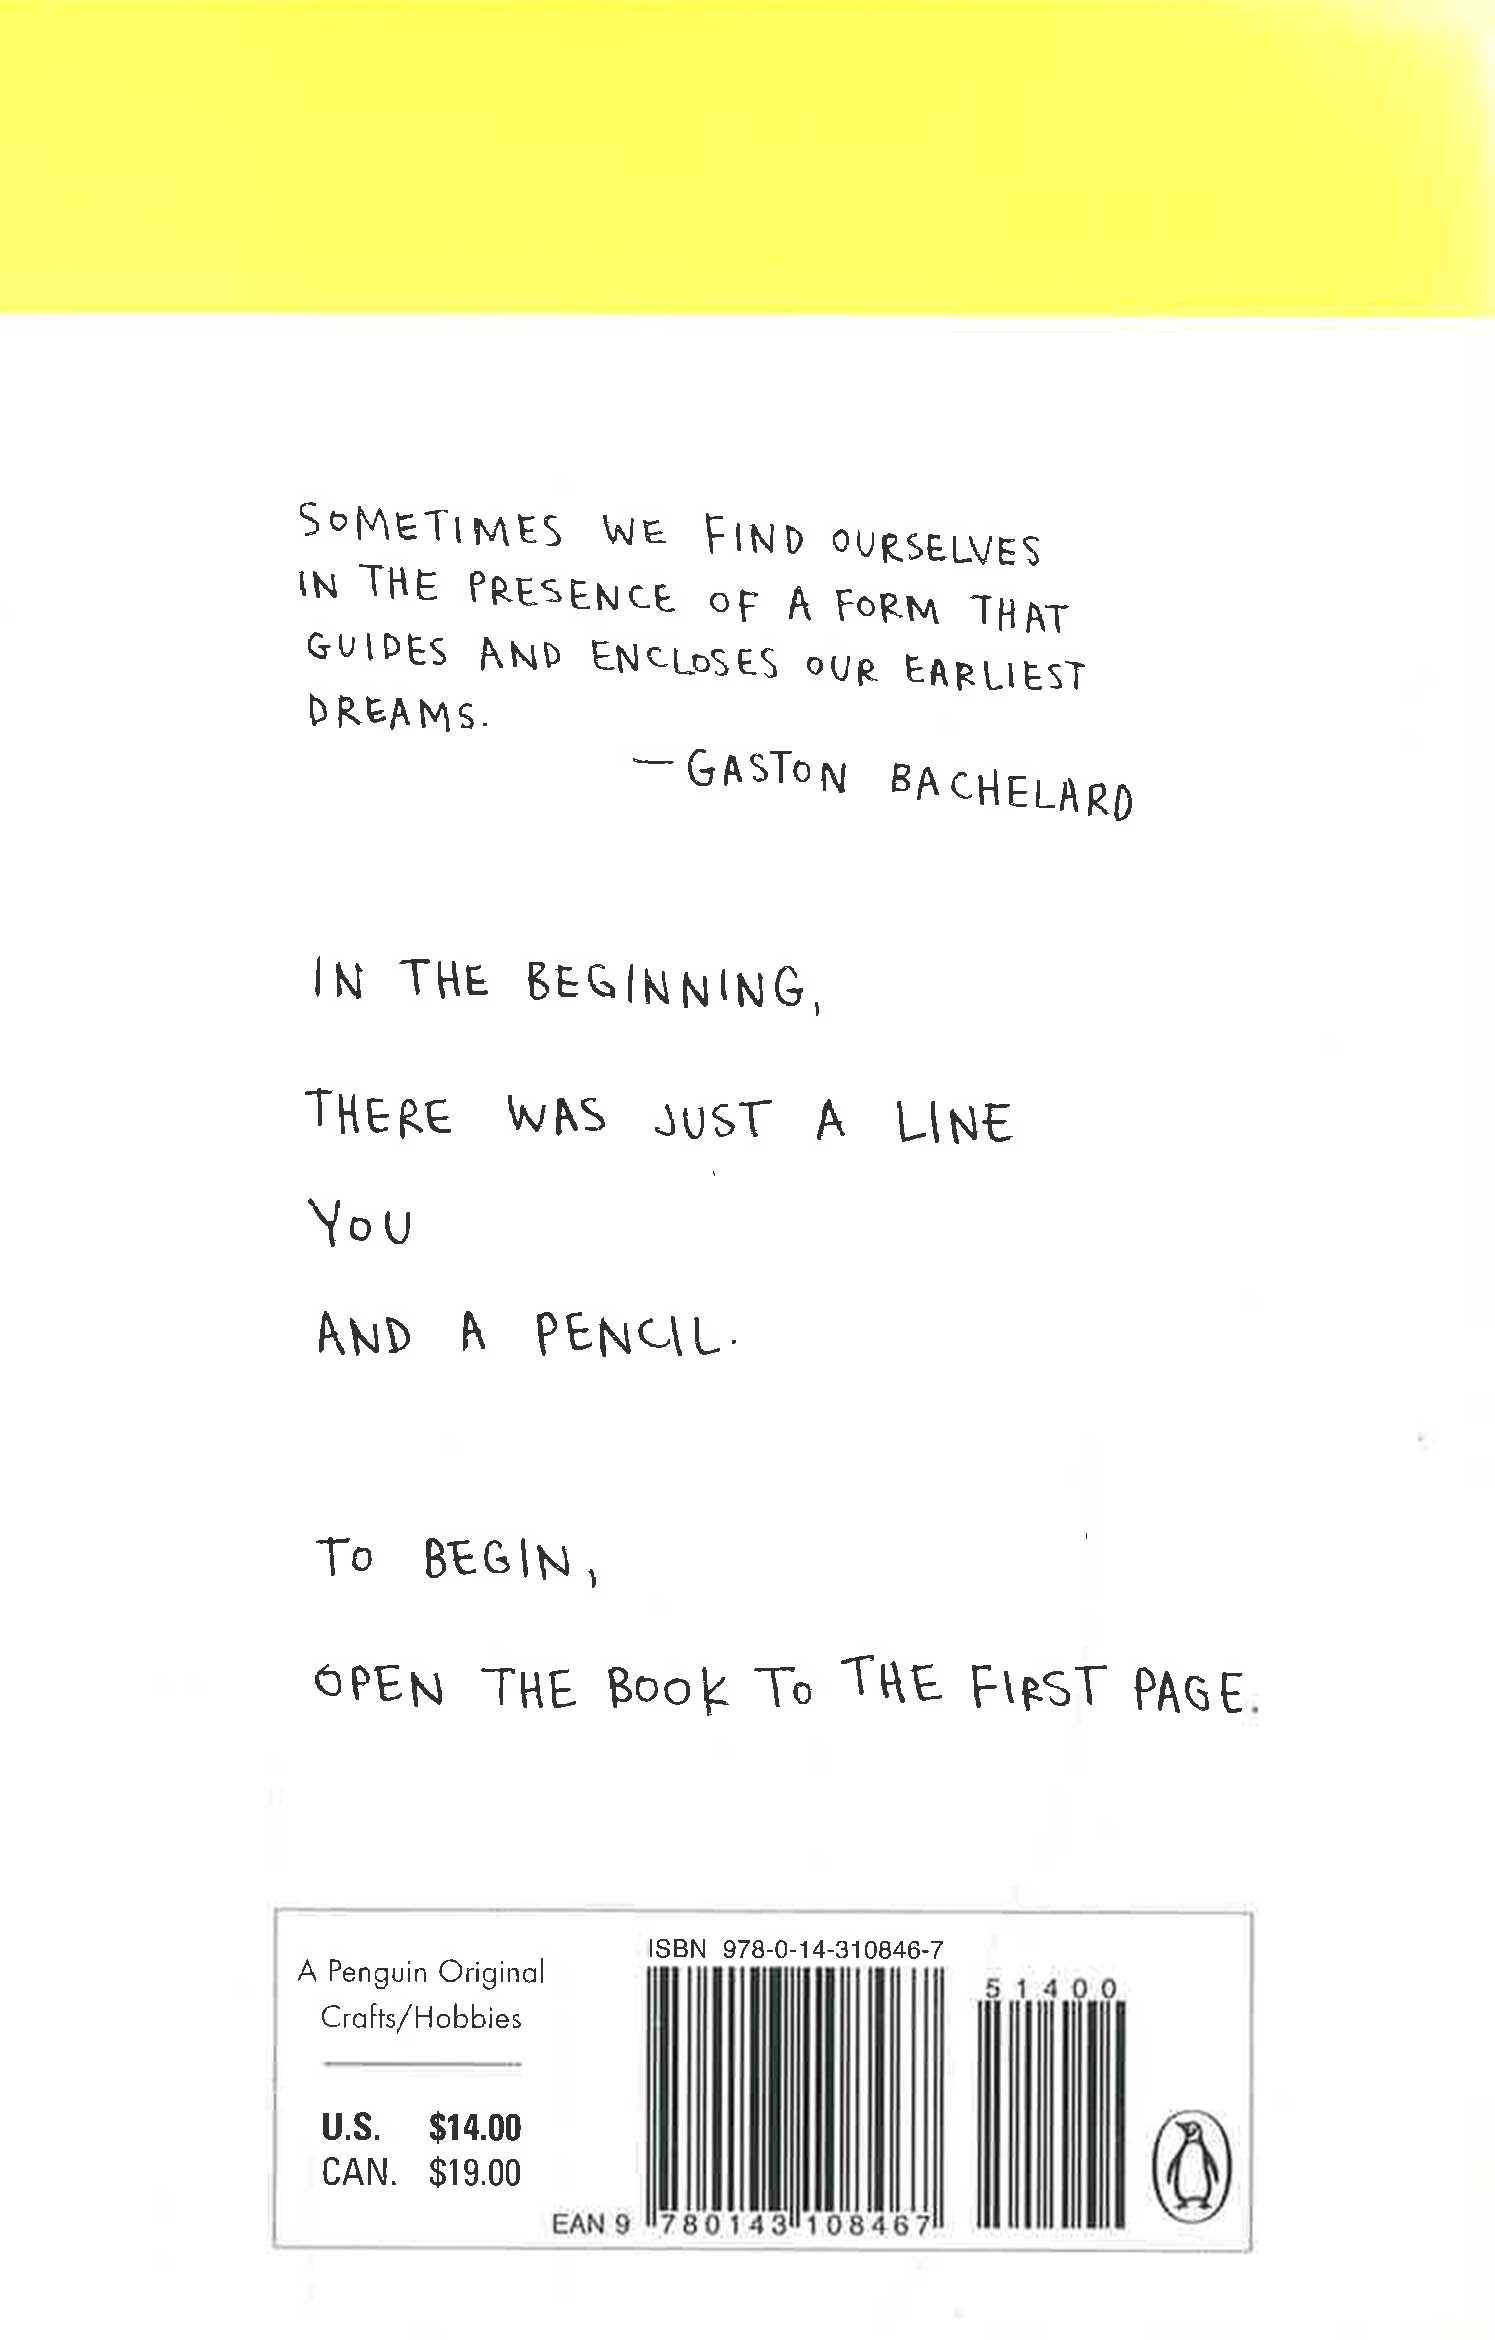 SOMETIMES WE FIND OURSELVES
IN THE PRESENCE OF A FORM THAT
GUIDES AND ENCLOSES OUR EARLIEST
DREAMS.
—GASTON BACHELARD
IN THE BEGINNING,
THERE WAS JUST A LINE
YOU
AND A PENCIL.
TO BEGIN,
OPEN THE BOOK TO THE FIRST PAGE.
A Penguin Original
Crafts/Hobbies
U.S. $14.00
CAN. $19.00
ISBN 978-0-14-310846-7
51400
EAN 9 780143 108467